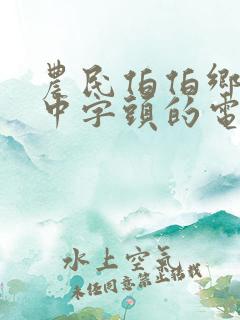 農民伯伯鄉
中字頭的電
水上空氣
未经同意禁止转载